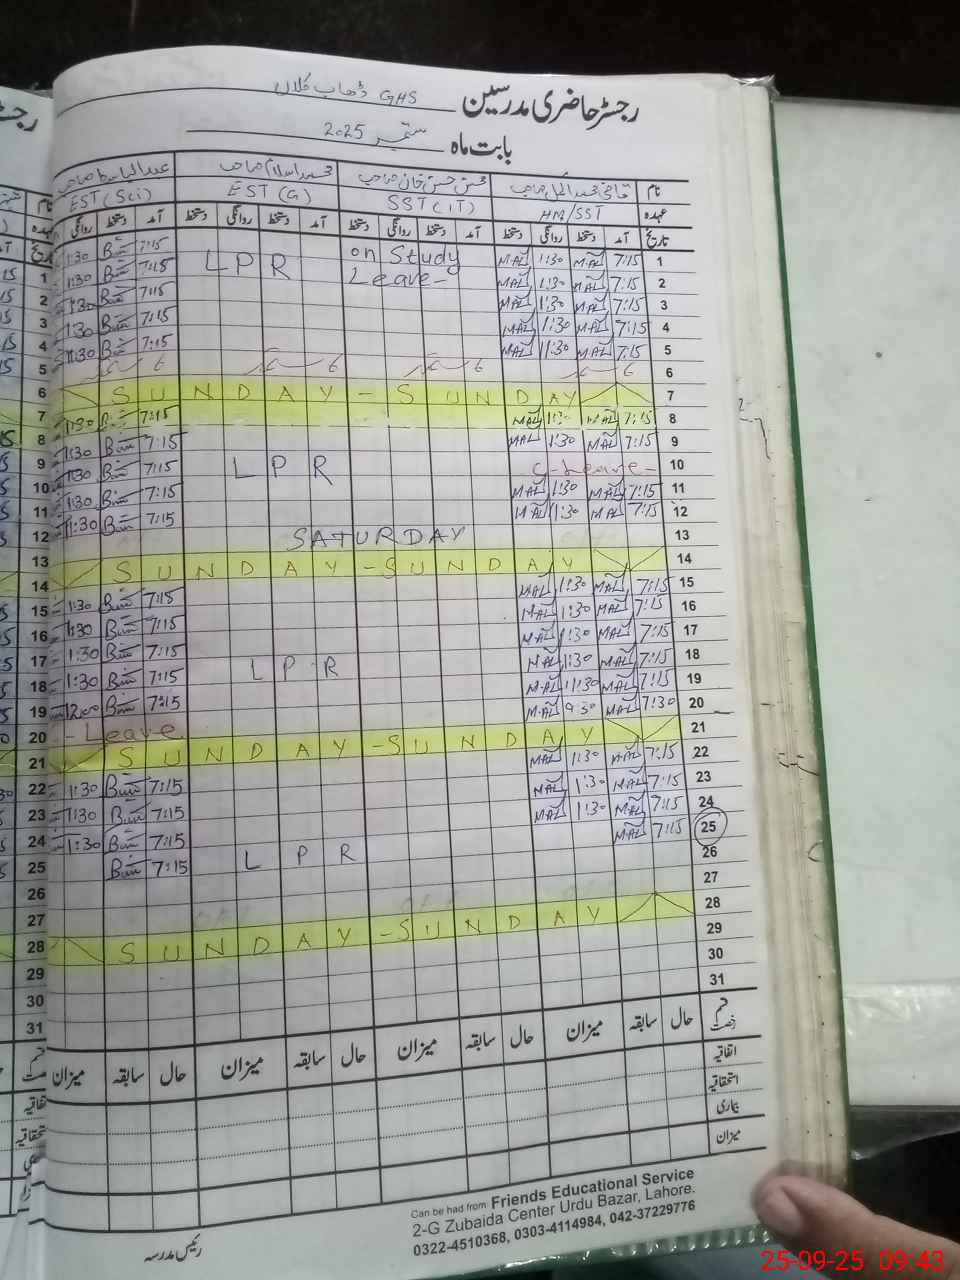 رجسٹر حاضری مدرسین GHS ڈھاب کلاں
بابت ماہ ستمبر 2025
نام
عہدہ HM/SST SST (IT) EST (G) EST (Sci)
تاریخ آمد دستخط روانگی دستخط آمد دستخط روانگی دستخط آمد دستخط روانگی دستخط آمد دستخط روانگی
1 7:15 MAL 1:30 MAL on Study LPR 7:15 1:30
2 7:15 MAL 1:30 MAL Leave- 7:15 1:30
3 7:15 MAL 1:30 MAL 7:15 1:30
4 7:15 MAL 1:30 MAL 7:15 1:30
5 7:15 MAL 1:30 MAL 7:15 1:30
6 6 ستمبر 6 ستمبر 6 ستمبر 6 ستمبر
7 SUNDAY - SUNDAY
8 7:15 MAL 1:30 MAL 7:15 1:30
9 7:15 MAL 1:30 MAL 7:15 1:30
10 C-Leave- LPR 7:15 1:30
11 7:15 MAL 1:30 MAL 7:15 1:30
12 7:15 MAL 1:30 MAL 7:15 1:30
13 SATURDAY
14 SUNDAY - SUNDAY
15 7:15 MAL 1:30 MAL 7:15 1:30
16 7:15 MAL 1:30 MAL 7:15 1:30
17 7:15 MAL 1:30 MAL 7:15 1:30
18 7:15 MAL 1:30 MAL LPR 7:15 1:30
19 7:15 MAL 11:30 MAL 7:15 12:00
20 7:30 MAL 9:30 MAL - Leave
21 SUNDAY - SUNDAY
22 7:15 MAL 1:30 MAL 7:15 1:30
23 7:15 MAL 1:30 MAL 7:15 1:30
24 7:15 MAL 1:30 MAL 7:15 1:30
25 7:15 MAL LPR 7:15
26
27
28 SUNDAY - SUNDAY
29
30
31
قسم رخصت حال سابقہ میزان حال سابقہ میزان حال سابقہ میزان حال سابقہ میزان
اتفاقیہ
استحقاقیہ
بیماری
میزان
رئیس مدرسہ
Can be had from Friends Educational Service
2-G Zubaida Center Urdu Bazar, Lahore.
0322-4510368, 0303-4114984, 042-37229776
25-09-25 09:43